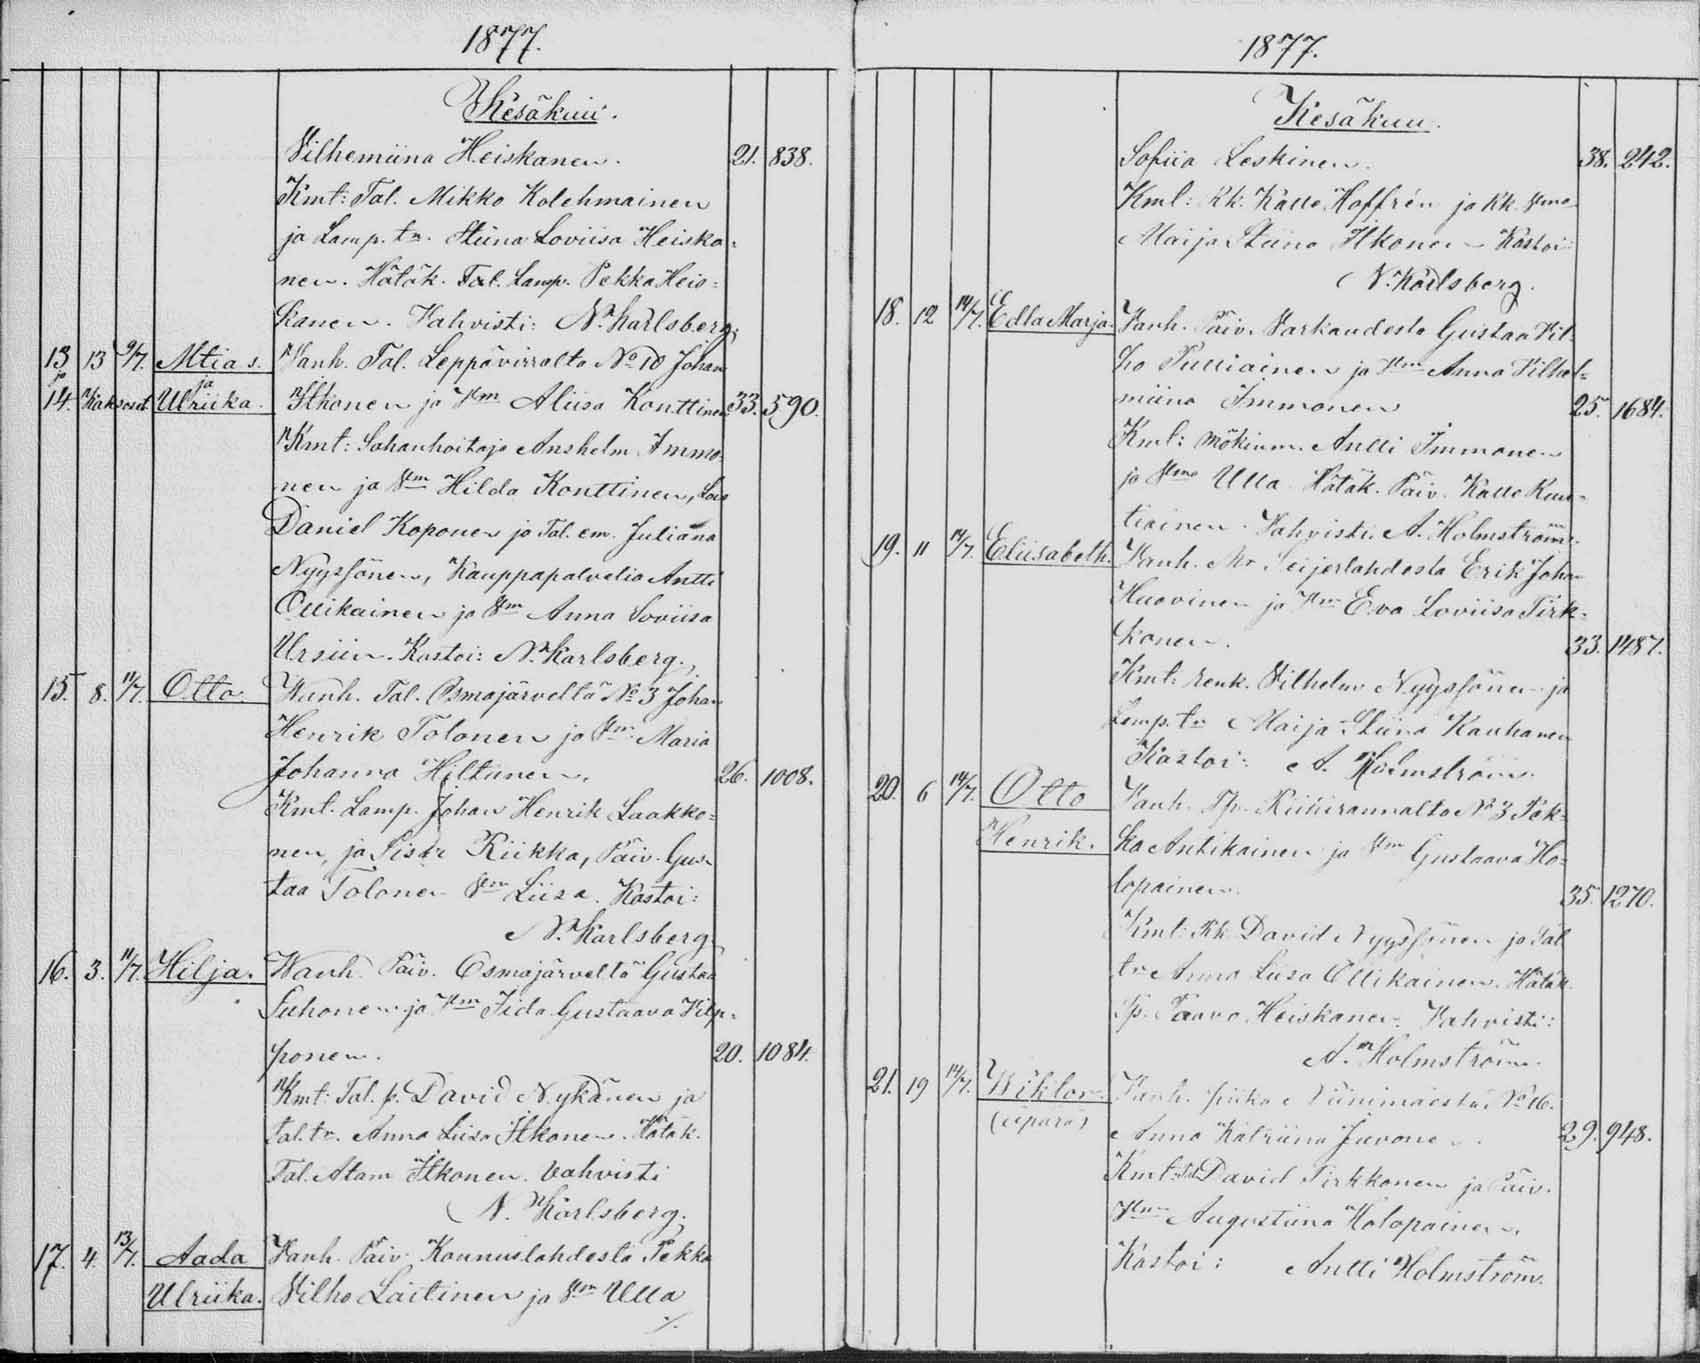 1877.
Kesäkuu.
Vilhemiina Heiskanen. 21. 838.
Kmt: Tal. Mikko Kolehmainen
ja Lamp. tr. Stiina Loviisa Heiska-
nen. Hätäk. Tal. Lamp. Pekka Heis-
kanen. Vahvisti: N. Karlsberg.
13 13 9/7. Mtias. Vanh. Tal. Leppävirralta No 10 Johan
ja ja
14. Kaksoset Ulriika. Itkonen ja Vm Aliisa Konttinen 33. 590.
Kmt: Sahanhoitaja Anshelm Immo-
nen ja Vm Hilda Konttinen,
Daniel Koponen ja Tal. em. Juliana
Nyyssönen, Kauppapalvelia Antti
Ollikainen ja Vm Anna Loviisa
Ursiin. Kastoi: N. Karlsberg.
15. 8. 11/7. Otto. Wanh. Tal. Osmajärveltä No 3 Johan
Henrik Tolonen ja Vm Maria
Johanna Hiltunen. 26. 1008.
Kmt. Lamp. Johan Henrik Laakko-
nen, ja Sisar Riikka, Päiv. Gus-
taa Tolonen Vm Liisa. Kastoi:
N. Karlsberg.
16. 3. 11/7. Hilja. Wanh. Päiv. Osmajärveltä Gustaa
Suhonen ja Vm Iida Gustaava Kilp-
ponen. 20. 1084.
Kmt: Tal. p. David Nykänen ja
Tal. tr. Anna Liisa Itkonen. Hätäk.
Tal. Atam Itkonen. Vahvisti
N. Karlsberg.
17. 4. 13/7. Aada Vanh. Päiv. Konnuslahdesta Pekka
Ulriika. Vilho Laitinen ja Vm Ulla
./.
1877.
Kesäkuu.
Sofiia Leskinen. 38. 242.
Kml: Rk. Kalle Hoffrén ja Rk. Vmo
Maija Stiina Itkonen Kastoi:
N. Karlsberg.
18. 12 14/7. Edla Marja. Vanh. Päiv. Varkaudesta Gustaa Vil-
ho Pulliainen ja Vm Anna Vilhel-
miina Immonen 25. 1684.
Kml: mökinm. Antti Immonen
ja Vmo Ulla Hätäk. Päiv. Kalle
tiainen. Vahvisti. A. Holmström.
19. 11 14/7. Eliisabeth. Vanh. Seijerlahdesta Erik Johan
Huovinen ja Vm Eva Loviisa Tirk-
konen. 33. 1487.
Kmt: renk. Vilhelm Nyyssönen ja
Lamp. tr Maija Stiina Kauhanen
Kastoi: A. Holmström.
20. 6 14/7. Otto Vanh. Tp. No 3 Pek-
Henrik. ka Antikainen ja Vm Gustaava Ho-
lopainen. 35. 1270.
Kmt: Rk David Nyyssönen ja Tal
tr Anna Liisa Ollikainen. Hätäk.
Paavo Heiskanen. Vahvisti:
A. Holmström.
21. 19 14/7. Wiktor Vanh. piika Niinimäestä No 16.
(äpärä) Anna Katriina Juvonen. 29. 948.
Kmt: Tal David Tirkkonen ja Päiv.
Vmo Augustiina Holopainen.
Kastoi: Antti Holmström.